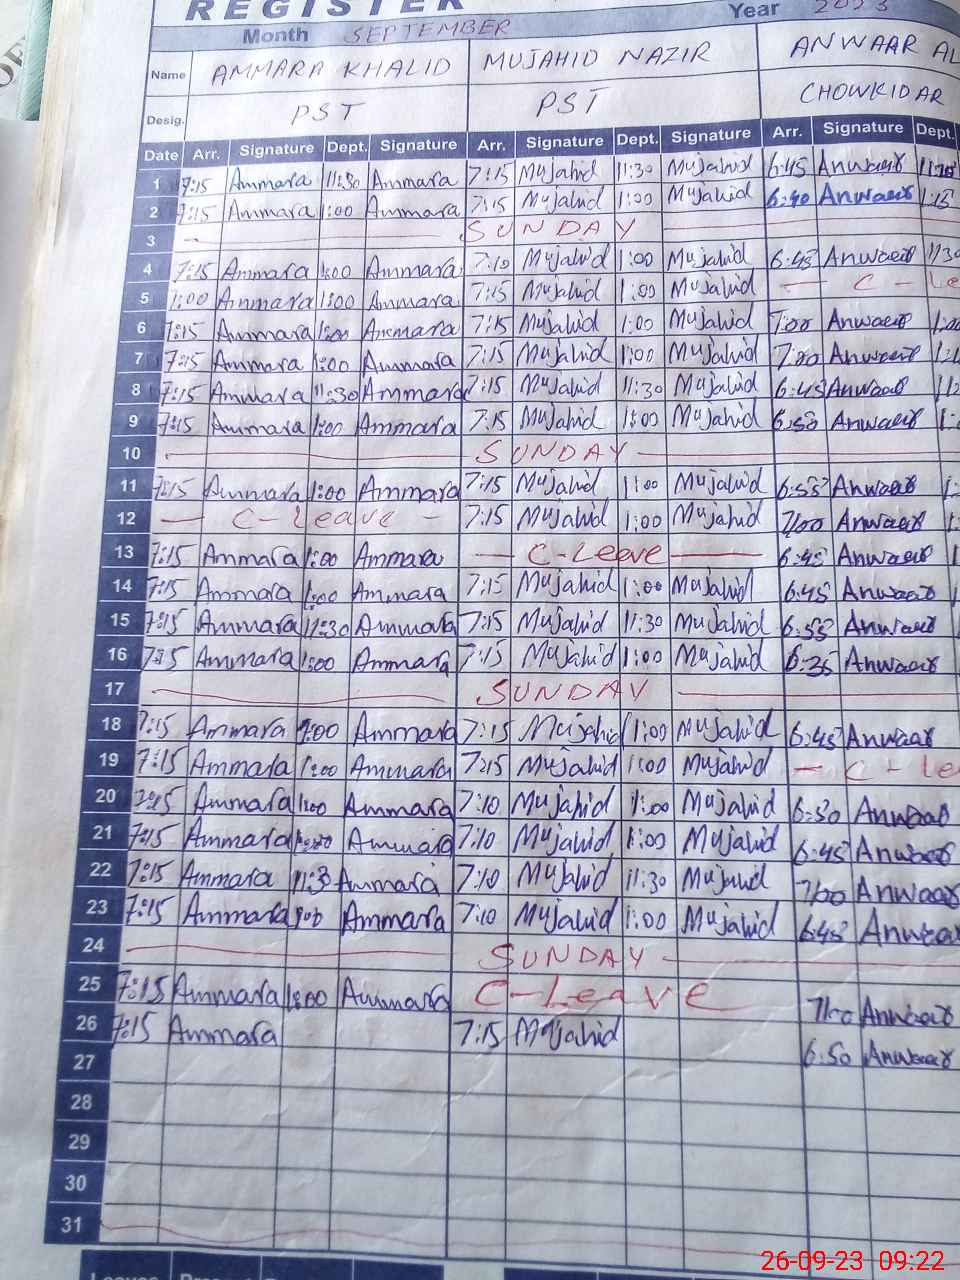 REGISTER
Month SEPTEMBER Year 2023
Name AMMARA KHALID MUJAHID NAZIR ANWAAR AL
Desig. PST PST CHOWKIDAR
Date Arr. Signature Dept. Signature Arr. Signature Dept. Signature Arr. Signature Dept.
1 7:15 Ammara 11:30 Ammara 7:15 Mujahid 11:30 Mujahid 6:45 Anwaar
2 7:15 Ammara 1:00 Ammara 7:15 Mujahid 1:00 Mujahid 6:40 Anwaar 1:15
3 SUNDAY
4 7:15 Ammara 1:00 Ammara 7:10 Mujahid 1:00 Mujahid 6:45 Anwaar 1:30
5 1:00 Ammara 1:00 Ammara 7:15 Mujahid 1:00 Mujahid C - Le
6 7:15 Ammara 1:00 Ammara 7:15 Mujahid 1:00 Mujahid 7:00 Anwaar 1:00
7 7:15 Ammara 1:00 Ammara 7:15 Mujahid 1:00 Mujahid 7:00 Anwaar
8 7:15 Ammara 11:30 Ammara 7:15 Mujahid 11:30 Mujahid 6:45 Anwaar
9 7:15 Ammara 1:00 Ammara 7:15 Mujahid 1:00 Mujahid 6:50 Anwaar
10 SUNDAY
11 7:15 Ammara 1:00 Ammara 7:15 Mujahid 1:00 Mujahid 6:55 Anwaar
12 C-Leave 7:15 Mujahid 1:00 Mujahid 7:00 Anwaar
13 7:15 Ammara 1:00 Ammara C-Leave 6:45 Anwaar
14 7:15 Ammara 1:00 Ammara 7:15 Mujahid 1:00 Mujahid 6:45 Anwaar
15 7:15 Ammara 11:30 Ammara 7:15 Mujahid 11:30 Mujahid 6:55 Anwaar
16 7:15 Ammara 1:00 Ammara 7:15 Mujahid 1:00 Mujahid 6:35 Anwaar
17 SUNDAY
18 7:15 Ammara 1:00 Ammara 7:15 Mujahid 1:00 Mujahid 6:45 Anwaar
19 7:15 Ammara 1:00 Ammara 7:15 Mujahid 1:00 Mujahid C - Le
20 7:15 Ammara 1:00 Ammara 7:10 Mujahid 1:00 Mujahid 6:50 Anwaar
21 7:15 Ammara 1:00 Ammara 7:10 Mujahid 1:00 Mujahid 6:45 Anwaar
22 7:15 Ammara 11:3 Ammara 7:10 Mujahid 11:30 Mujahid 7:00 Anwaar
23 7:15 Ammara 1:00 Ammara 7:10 Mujahid 1:00 Mujahid 6:45 Anwaa
24 SUNDAY
25 7:15 Ammara 1:00 Ammara C-Leave 7:00 Anwaar
26 7:15 Ammara 7:15 Mujahid 6:50 Anwaar
27
28
29
30
31
26-09-23 09:22